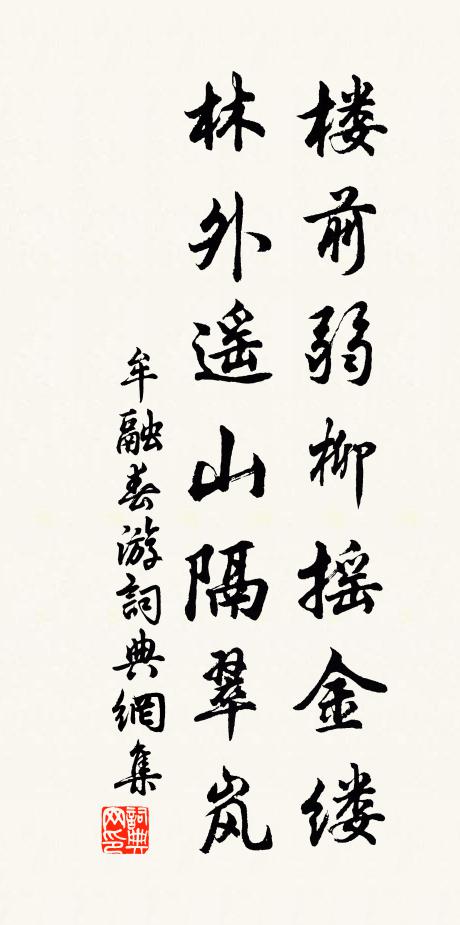 楼前弱柳摇金缕
林外遥山隔翠岚
牟融春游詞典網集
詞典网印